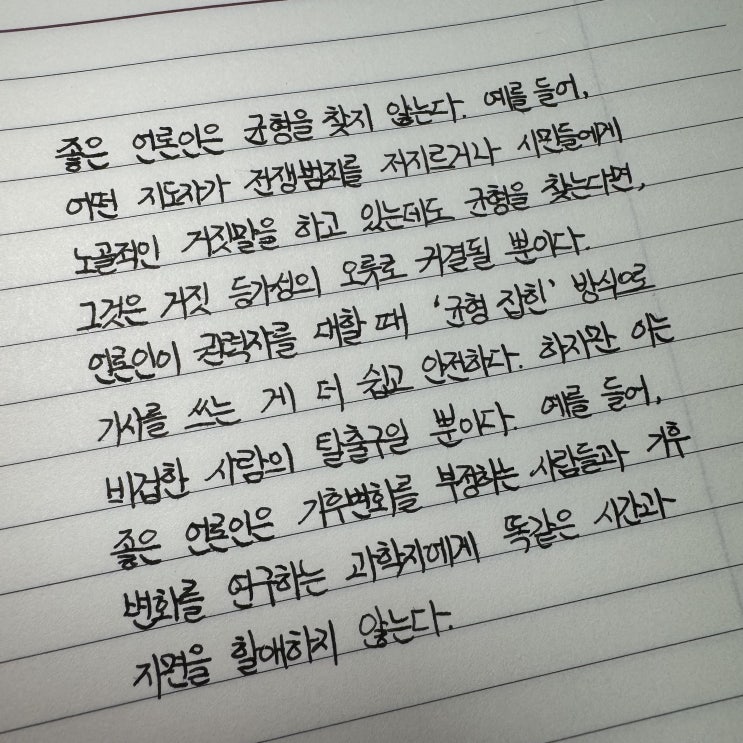 좋은 언론인은 균형을 찾지 않는다. 예를 들어,
어떤 지도자가 전쟁범죄를 저지르거나 시민들에게
노골적인 거짓말을 하고 있는데도 균형을 찾는다면,
그것은 거짓 등가성의 오류로 귀결될 뿐이다.
언론인이 권력자를 대할 때 '균형 잡힌' 방식으로
기사를 쓰는 게 더 쉽고 안전하다. 하지만 이는
비겁한 사람의 탈출구일 뿐이다. 예를 들어,
좋은 언론인은 기후변화를 부정하는 사람들과 기후
변화를 연구하는 과학자에게 똑같은 시간과
지면을 할애하지 않는다.